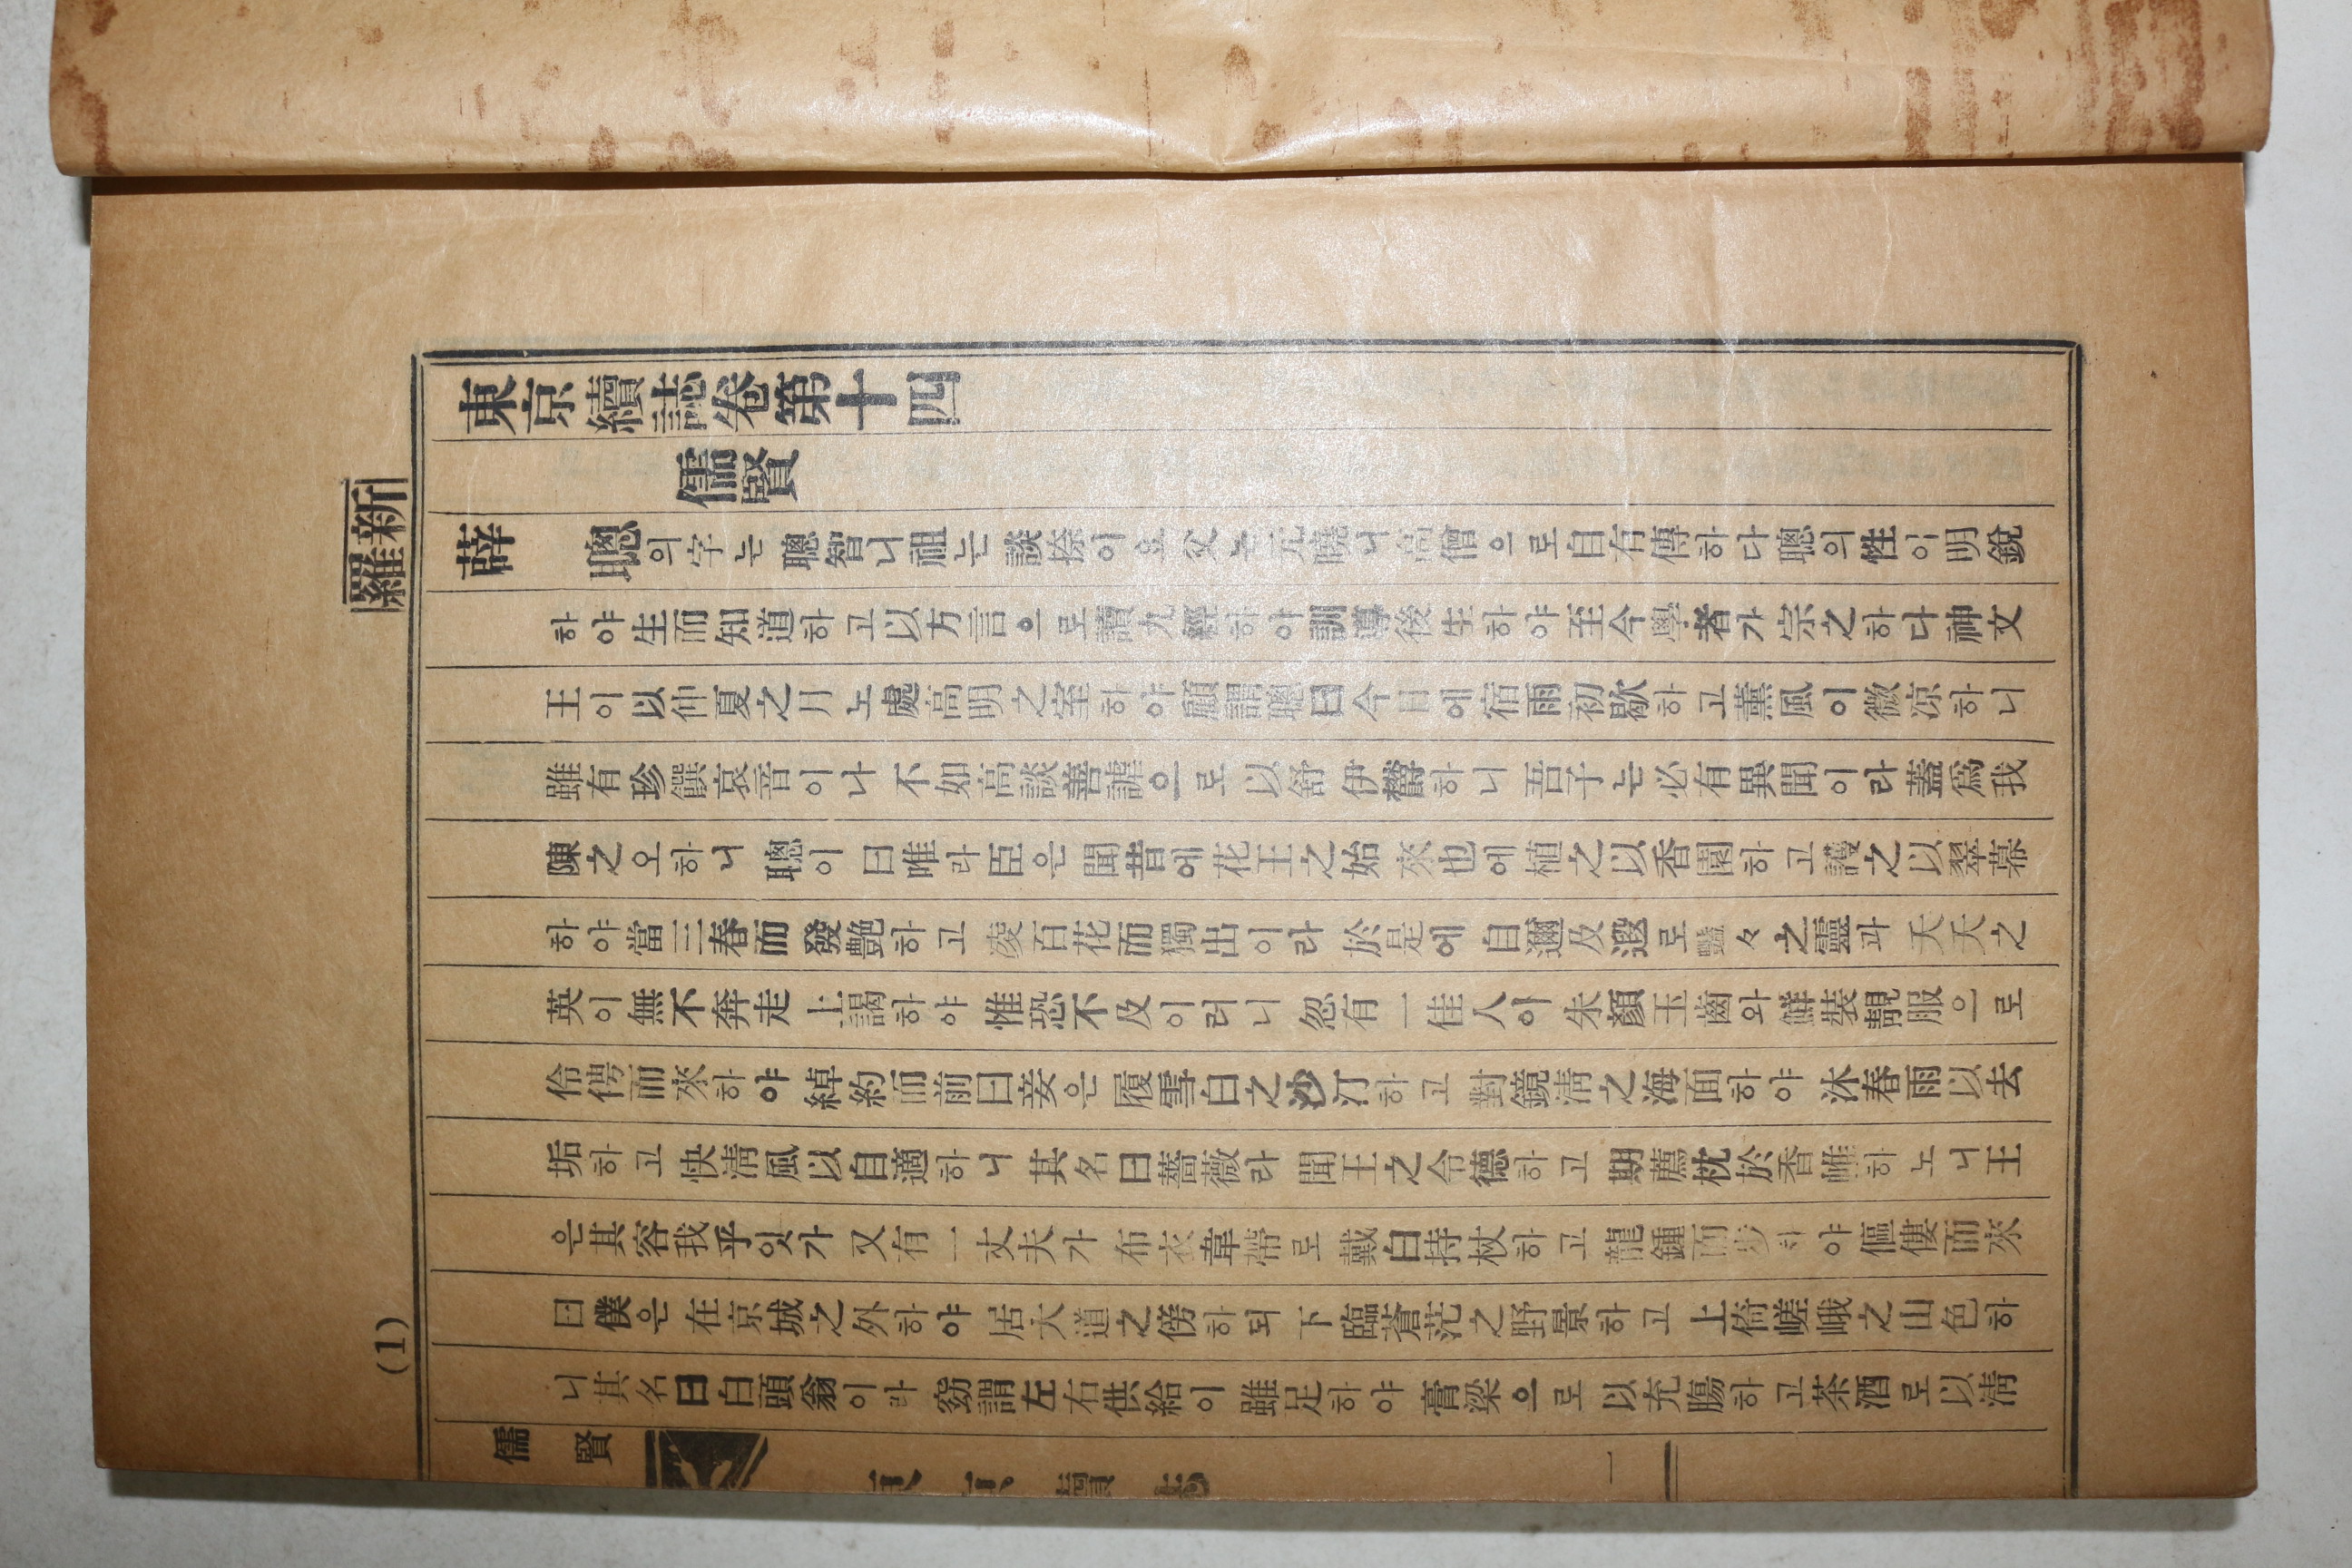 羅新
(1)
東京續誌卷第十四
儒賢
薛聰의字는聰智니祖는談捺이요父는元曉니高僧으로自有傳하다聰의性이明銳
하야生而知道하고以方言으로讀九經하야訓導後生하야至今學者가宗之하다神文
王이以仲夏之月노處高明之室하야顧謂聰曰今日에宿雨初歇하고薰風이微凉하니
雖有珍饌哀音이나不如高談善謔으로以舒伊欝하니吾子는必有異聞이라蓋爲我
陳之오하니聰이曰唯라臣은聞昔에花王之始來也에植之以香園하고護之以翠幕
하야當三春而發艶하고凌百花而獨出이라於是에自邇及遐로艷々之靈과夭夭之
英이無不奔走上謁하야惟恐不及이러니忽有一佳人아朱顏玉齒와鮮裝靚服으로
伶俜而來하야綽約而前曰妾은履雪白之沙汀하고對鏡淸之海面하야沐春雨以去
垢하고快淸風以自適하니其名曰薔薇라聞王之令德하고期薦枕於香帷하노니王
은其容我乎잇가又有一丈夫가布衣韋帶로戴白持杖하고龍鍾而步하야傴僂而來
曰僕은在京城之外하야居大道之傍하되下臨蒼茫之野景하고上倚嵯峨之山色하
니其名曰白頭翁이라窈謂左右供給이雖足하야膏梁으로以充膓하고茶酒로以淸
儒賢
東京續誌
一